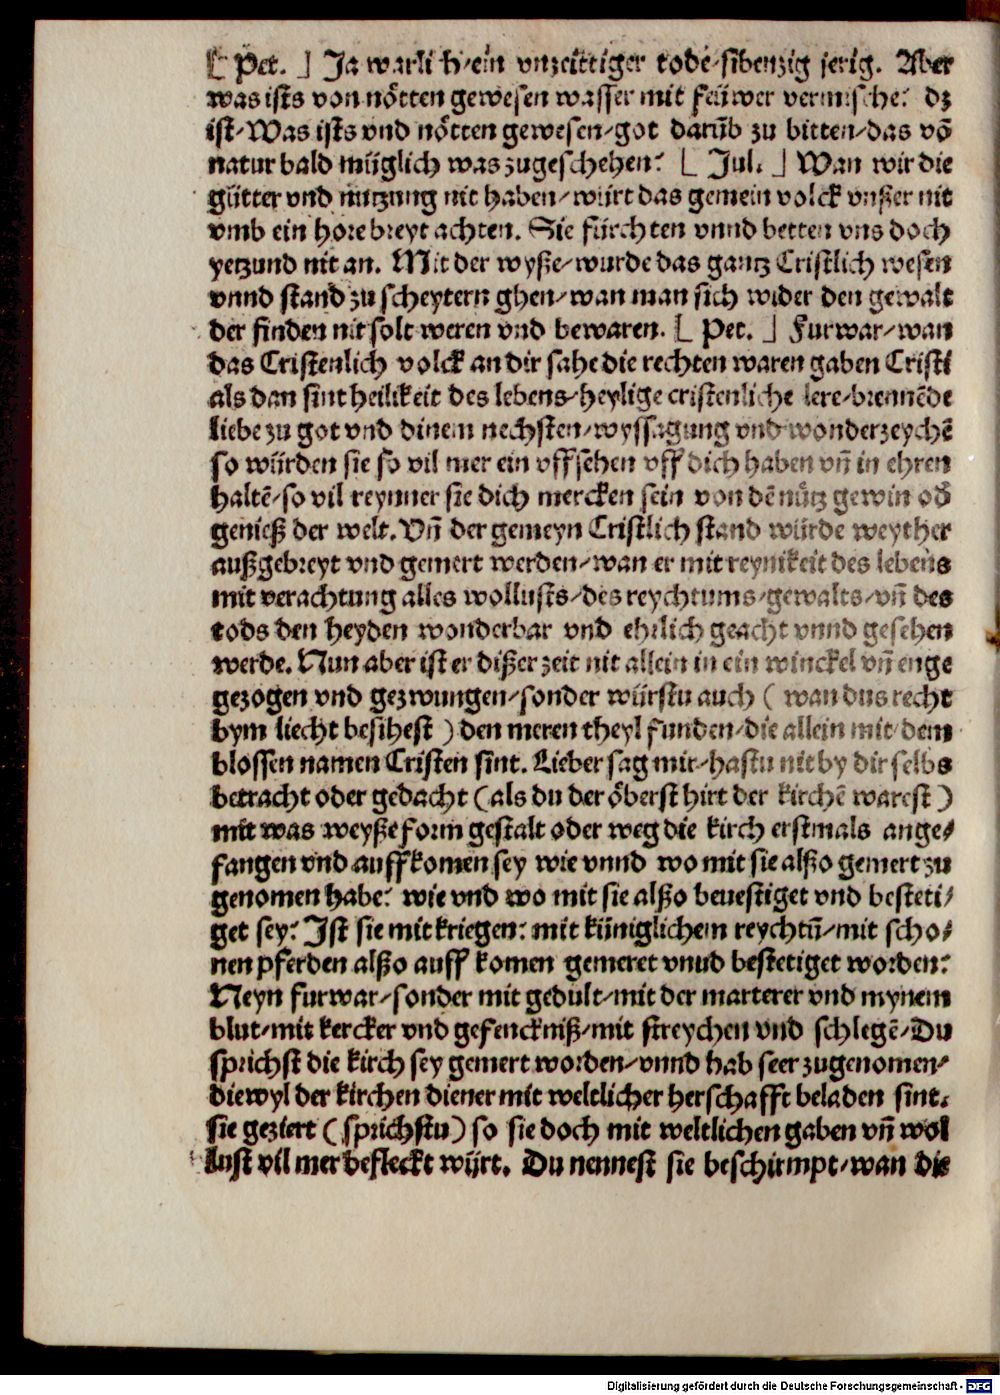 [ Pet. ] Ja warlich/ein vnzeittiger tode/sibenzig jerig. Aber
was ists von nötten gewesen wasser mit feüwer vermische? dz
ist/Was ists vnd nötten gewesen/got darūb zu bitten/das vō
natur bald müglich was zugeschehen? [ Jul. ] Wan wir die
gütter vnd nutzung nit haben/würt das gemein volck vnßer nit
vmb ein hore breyt achten. Sie fürchten vnnd betten vns doch
yetzund nit an. Mit der wyße/wurde das gantz Cristlich wesen
vnnd stand zu scheytern ghen/wan man sich wider den gewalt
der finden nit solt weren vnd bewaren. [ Pet. ] Furwar/wan
das Cristenlich volck an dir sahe die rechten waren gaben Cristi
als dan sint heilikeit des lebens/heylige cristenliche lere/brennēde
liebe zu got vnd dinem nechsten/wyssagung vnd wonderzeychē
so würden sie so vil mer ein vffsehen vff dich haben vñ in ehren
haltē/so vil reynner sie dich mercken sein von dē nütz gewin oď
genieß der welt. Vñ der gemeyn Cristlich stand würde weyther
außgebreyt vnd gemert werden/wan er mit reynikeit des lebens
mit verachtung alles wollusts/des reychtums/gewalts/vñ des
tods den heyden wonderbar vnd ehrlich geacht vnnd gesehen
werde. Nun aber ist er dißer zeit nit allein in ein winckel vñ enge
gezogen vnd gezwungen/sonder würstu auch ( wan dus recht
bym liecht besihest ) den meren theyl funden/die allein mit dem
blossen namen Cristen sint. Lieber sag mir/hastu nit by dir selbs
betracht oder gedacht (als du der öberst hirt der kirchē warest )
mit was weyße form gestalt oder weg die kirch erstmals ange/
fangen vnd auffkomen sey wie vnnd wo mit sie alßo gemert zu
genomen habe? wie vnd wo mit sie alßo beuestiget vnd besteti/
get sey? Ist sie mit kriegen? mit küniglichem reychtū/mit scho/
nen pferden alßo auff komen gemeret vnud bestetiget worden?
Neyn furwar/sonder mit gedult/mit der marterer vnd mynem
blut/mit kercker vnd gefenckniß/mit streychen vnd schlegē/Du
sprichst die kirch sey gemert worden/vnnd hab seer zugenomen/
diewyl der kirchen diener mit weltlicher herschafft beladen sint.
sie geziert ( sprichstu) so sie doch mit weltlichen gaben vñ wol
lust vil mer befleckt würt. Du nennest sie beschirmpt/wan die
Digitalisierung gefördert durch die Deutsche Forschungsgemeinschaft - DFG